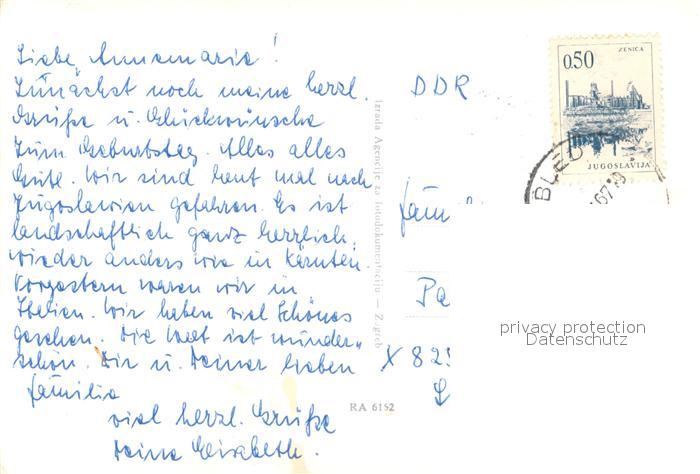 Liebe Annemarie!
Zunächst noch meine herzl.
Grüße u. Glückwünsche
zum Geburtstag. Alles alles
Gute. Wir sind heut mal nach
Jugoslawien gefahren. Es ist
landschaftlich ganz herrlich,
wieder anders wie in Kärnten.
Vorgestern waren wir in
Italien. Wir haben viel Schönes
gesehen. Die Welt ist wunder-
schön. Dir u. Deiner lieben
Familie
viel herzl. Grüße
Deine Elisabeth.
Izrada Agencije za fotodokumentaciju — Zagreb
RA 6152
DDR
Fam
Pa
X 825
ZENICA
0.50
JUGOSLAVIJA
BLED
67
privacy protection
Datenschutz